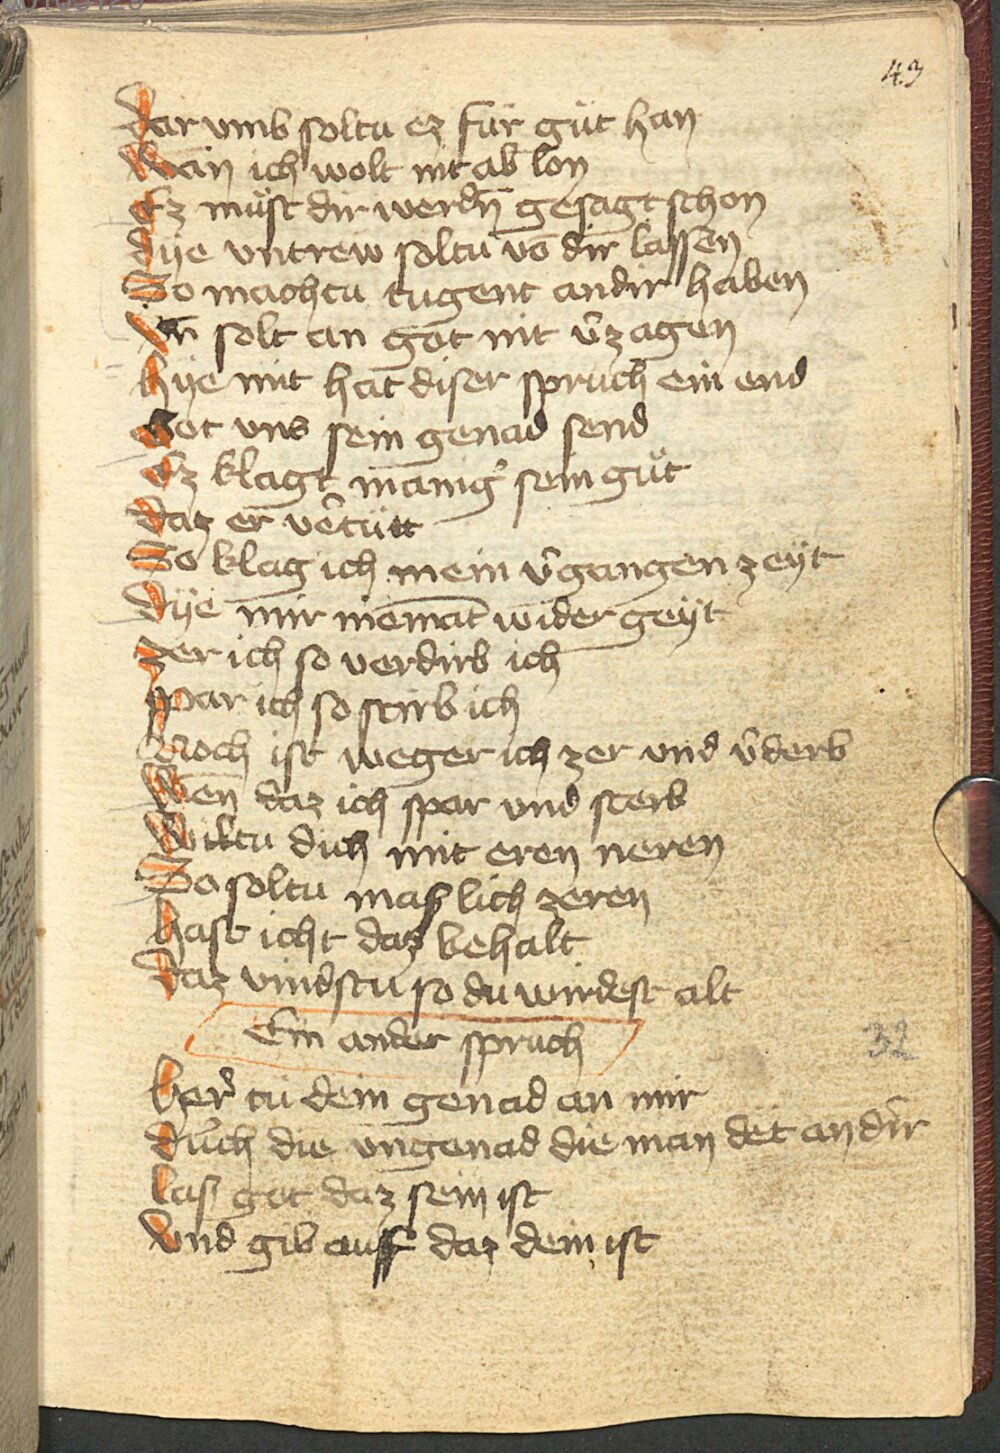 43
Dar vmb soltu ez für güt han
Wan ich wolt nit ab lon
Ez müst dir werdn̄ gesagt schon
Dye vntrew soltu vō dir lassen
So machtu tugent an dir haben
Vn̄ solt an got nit v̉zagen
Hye mit hat diser spruch ein end
Got vns sein genad send
Ez klagt manig̉ sein güt
Daz er v̉tütt
So klag ich mein v̉gangen zeyt
Dye mir niemāt wider geyt
Zer ich so verdirb ich
Spar ich so stirb ich
Noch ist weger ich zer vnd v̉derb
Wen̄ daz ich spar vnd sterb
Wiltu dich mit eren neren
So soltu maß lich zeren
Hast icht daz behalt
Daz vindstu so du wirdest alt
Ein ander spruch
32
Her̉ tu dein genad an mir
Durch die vngenad die man det an dir
Laß got daz sein ist
Vnd gib auff daz dein ist